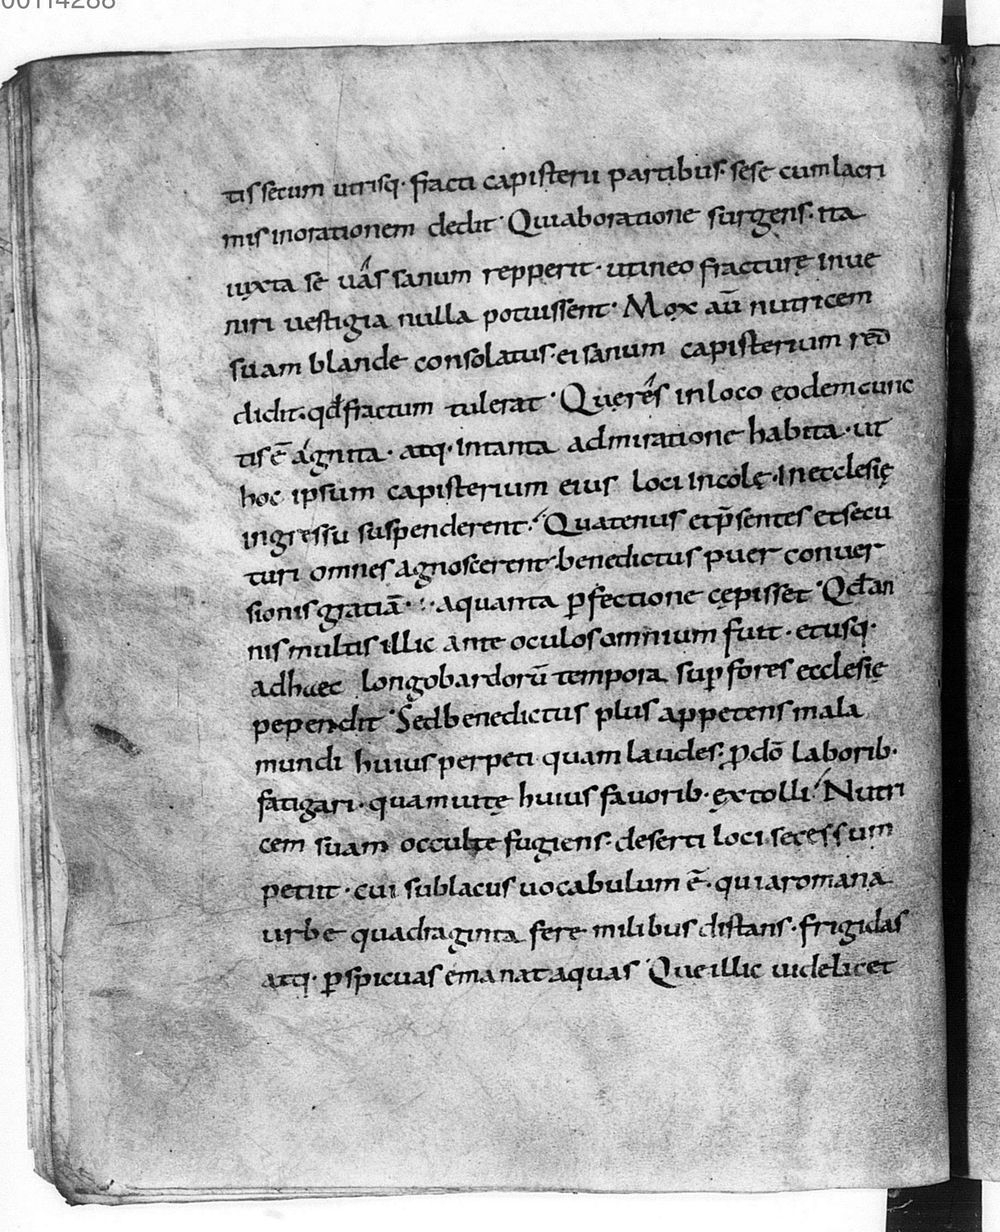 00114288
tis secum utrisq· fracti capisterii partibus· sese cum lacri
mis inorationem dedit· Quiaboratione surgens· ita
iuxta se uás sanum repperit· utineo fracturę inue
niri uestigia nulla potuissent· Mox aū nutricem
suam blande consolatus· ei sanum capisterium red
didit· qđ fractum tulerat· Querés inloco eodem cunc
tis ē ágnita· atq· intanta admiratione habita· ut
hoc ipsum capisterium eius loci incolę· Inecclesię
ingressu suspenderent· Quatenus et p̄sentes et secu
turi omnes agnoscerent· benedictus puer conuer
sionis gratiā· aquanta ꝑfectione cępisset· Qđ an
nis multis illic ante oculos omnium fuit· et usq·
adhaec longobardorū tempora suꝑ fores ecclesię
pependit· Sed benedictus plus appetens mala
mundi huius perpeti quam laudes· ꝓ dō laborib·
fatigari· quam uitę huius fauorib· ęxtolli· Nutri
cem suam occulte fugiens· deserti loci secessum
petiit· cui sublacus uocabulum ē· quiaromana
urbe quadraginta fere milibus distans· frigidas
atq· ꝑspicuas emanat aquas· Que illic uidelicet